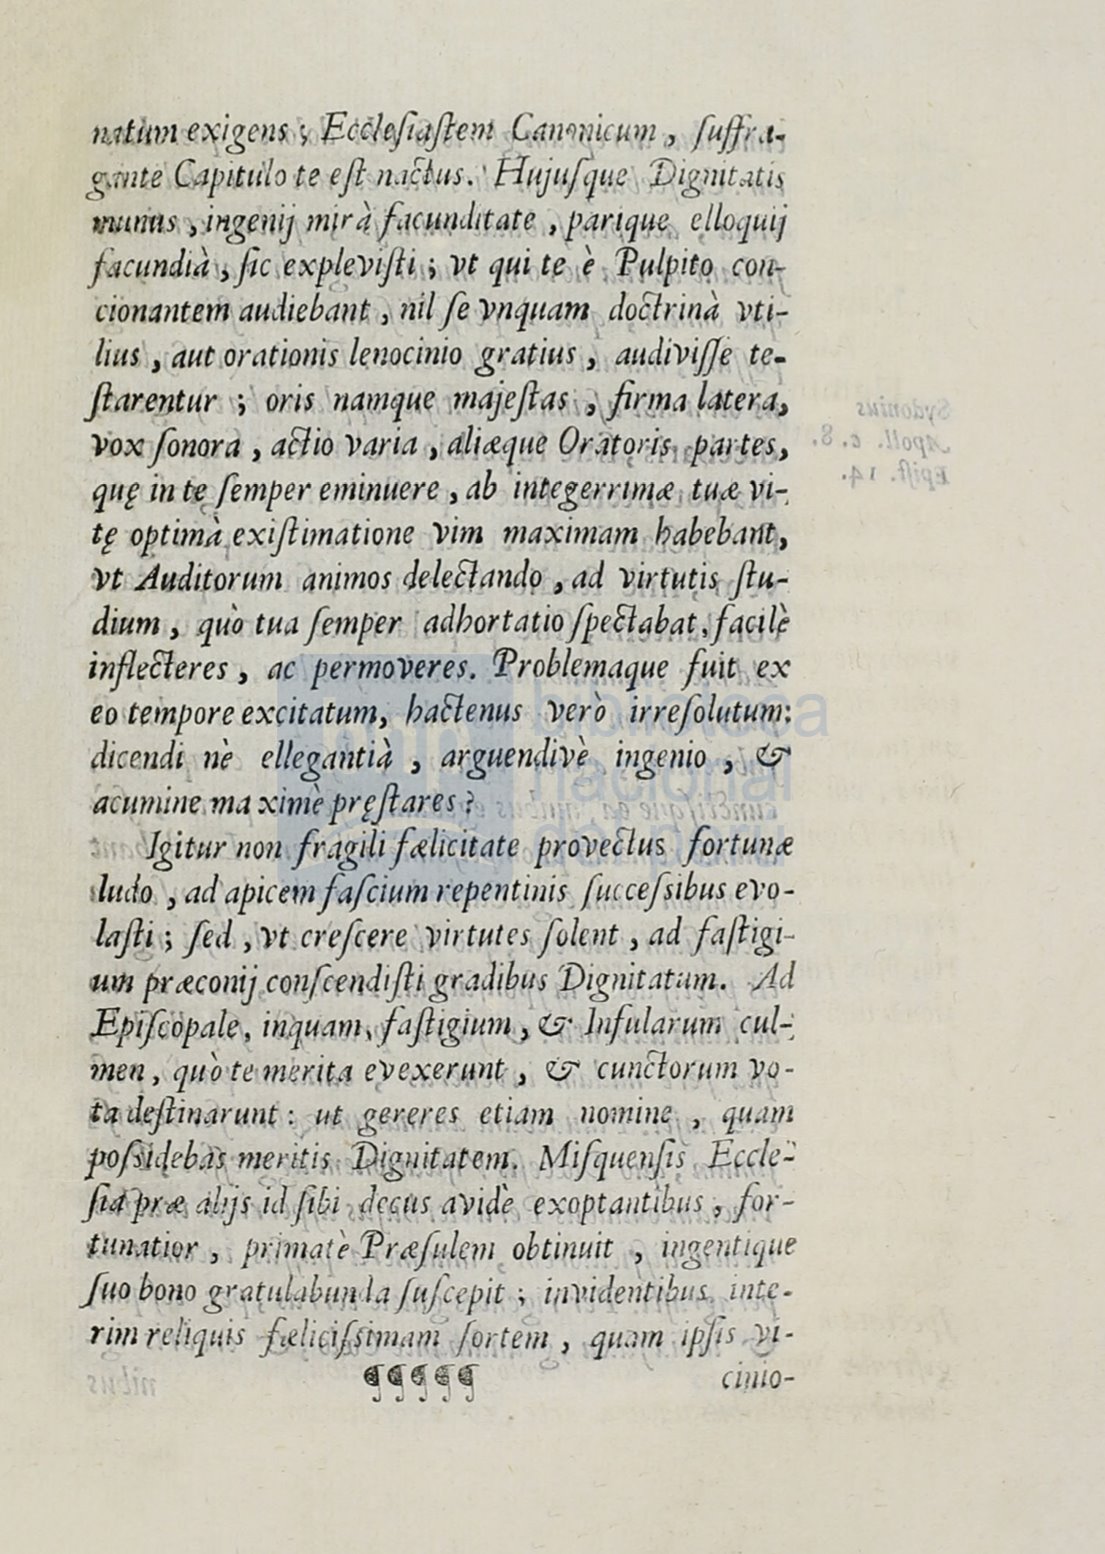 natum exigens; Eccleſiaſtem Canonicum, ſuffra-
gante Capitulo te eſt nactus. Hujuſque Dignitatis
munus, ingenij mirà facunditate, parique elloquij
facundià, ſic explevisti; vt qui te è Pulpito con-
cionantem audiebant, nil ſe vnquam doctrinà vti-
lius, aut orationis lenocinio gratius, audiviſſe te-
ſtarentur; oris namque majeſtas, firma latera,
vox ſonora, actio varia, aliæque Oratoris partes,
quę in te ſemper eminuere, ab integerrimæ tuæ vi-
tę optimà exiſtimatione vim maximam habebant,
vt Auditorum animos delectando, ad virtutis ſtu-
dium, quò tua ſemper adhortatio ſpectabat, facilè
inflecteres, ac permoveres. Problemaque fuit ex
eo tempore excitatum, hactenus verò irreſolutum:
dicendi nè ellegantià, arguendivè ingenio, &
acumine maximè pręſtares?
Igitur non fragili fælicitate provectus fortunæ
ludo, ad apicem faſcium repentinis ſucceſsibus evo-
laſti; ſed, vt creſcere virtutes ſolent, ad faſtigi-
um præconij conſcendiſti gradibus Dignitatum. Ad
Epiſcopale, inquam, faſtigium, & Infularum cul-
men, quò te merita evexerunt, & cunctorum vo-
ta deſtinarunt: ut gereres etiam nomine, quam
poſsidebas meritis Dignitatem. Miſquenſis Eccle-
ſia præ alijs id ſibi decus avidè exoptantibus, for-
tunatior, primatè Præſulem obtinuit, ingentique
ſuo bono gratulabunda ſuſcepit; invidentibus inte-
rim reliquis fæliciſsimam ſortem, quam ipſis vi-
¶¶¶¶¶ cinio-
biblioteca
nacional
del perú